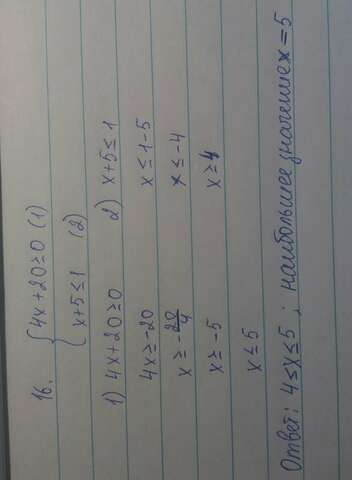 16. { 4x + 20 ≥ 0 (1)
x + 5 ≤ 1 (2)
1) 4x + 20 ≥ 0 2) x + 5 ≤ 1
4x ≥ -20 x ≤ 1 - 5
x ≥ - 20/4 x ≤ -4
x ≥ -5 x ≥ 4
x ≤ 5
Ответ: 4 ≤ x ≤ 5 ; наибольшее значение x = 5